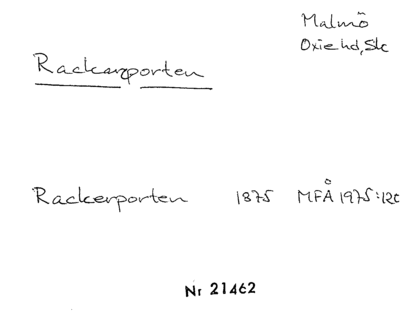 Malmö
Oxie hd, Sk
Rackarporten
Rackerporten 1875 MFÅ 1975:120
Nr 21462